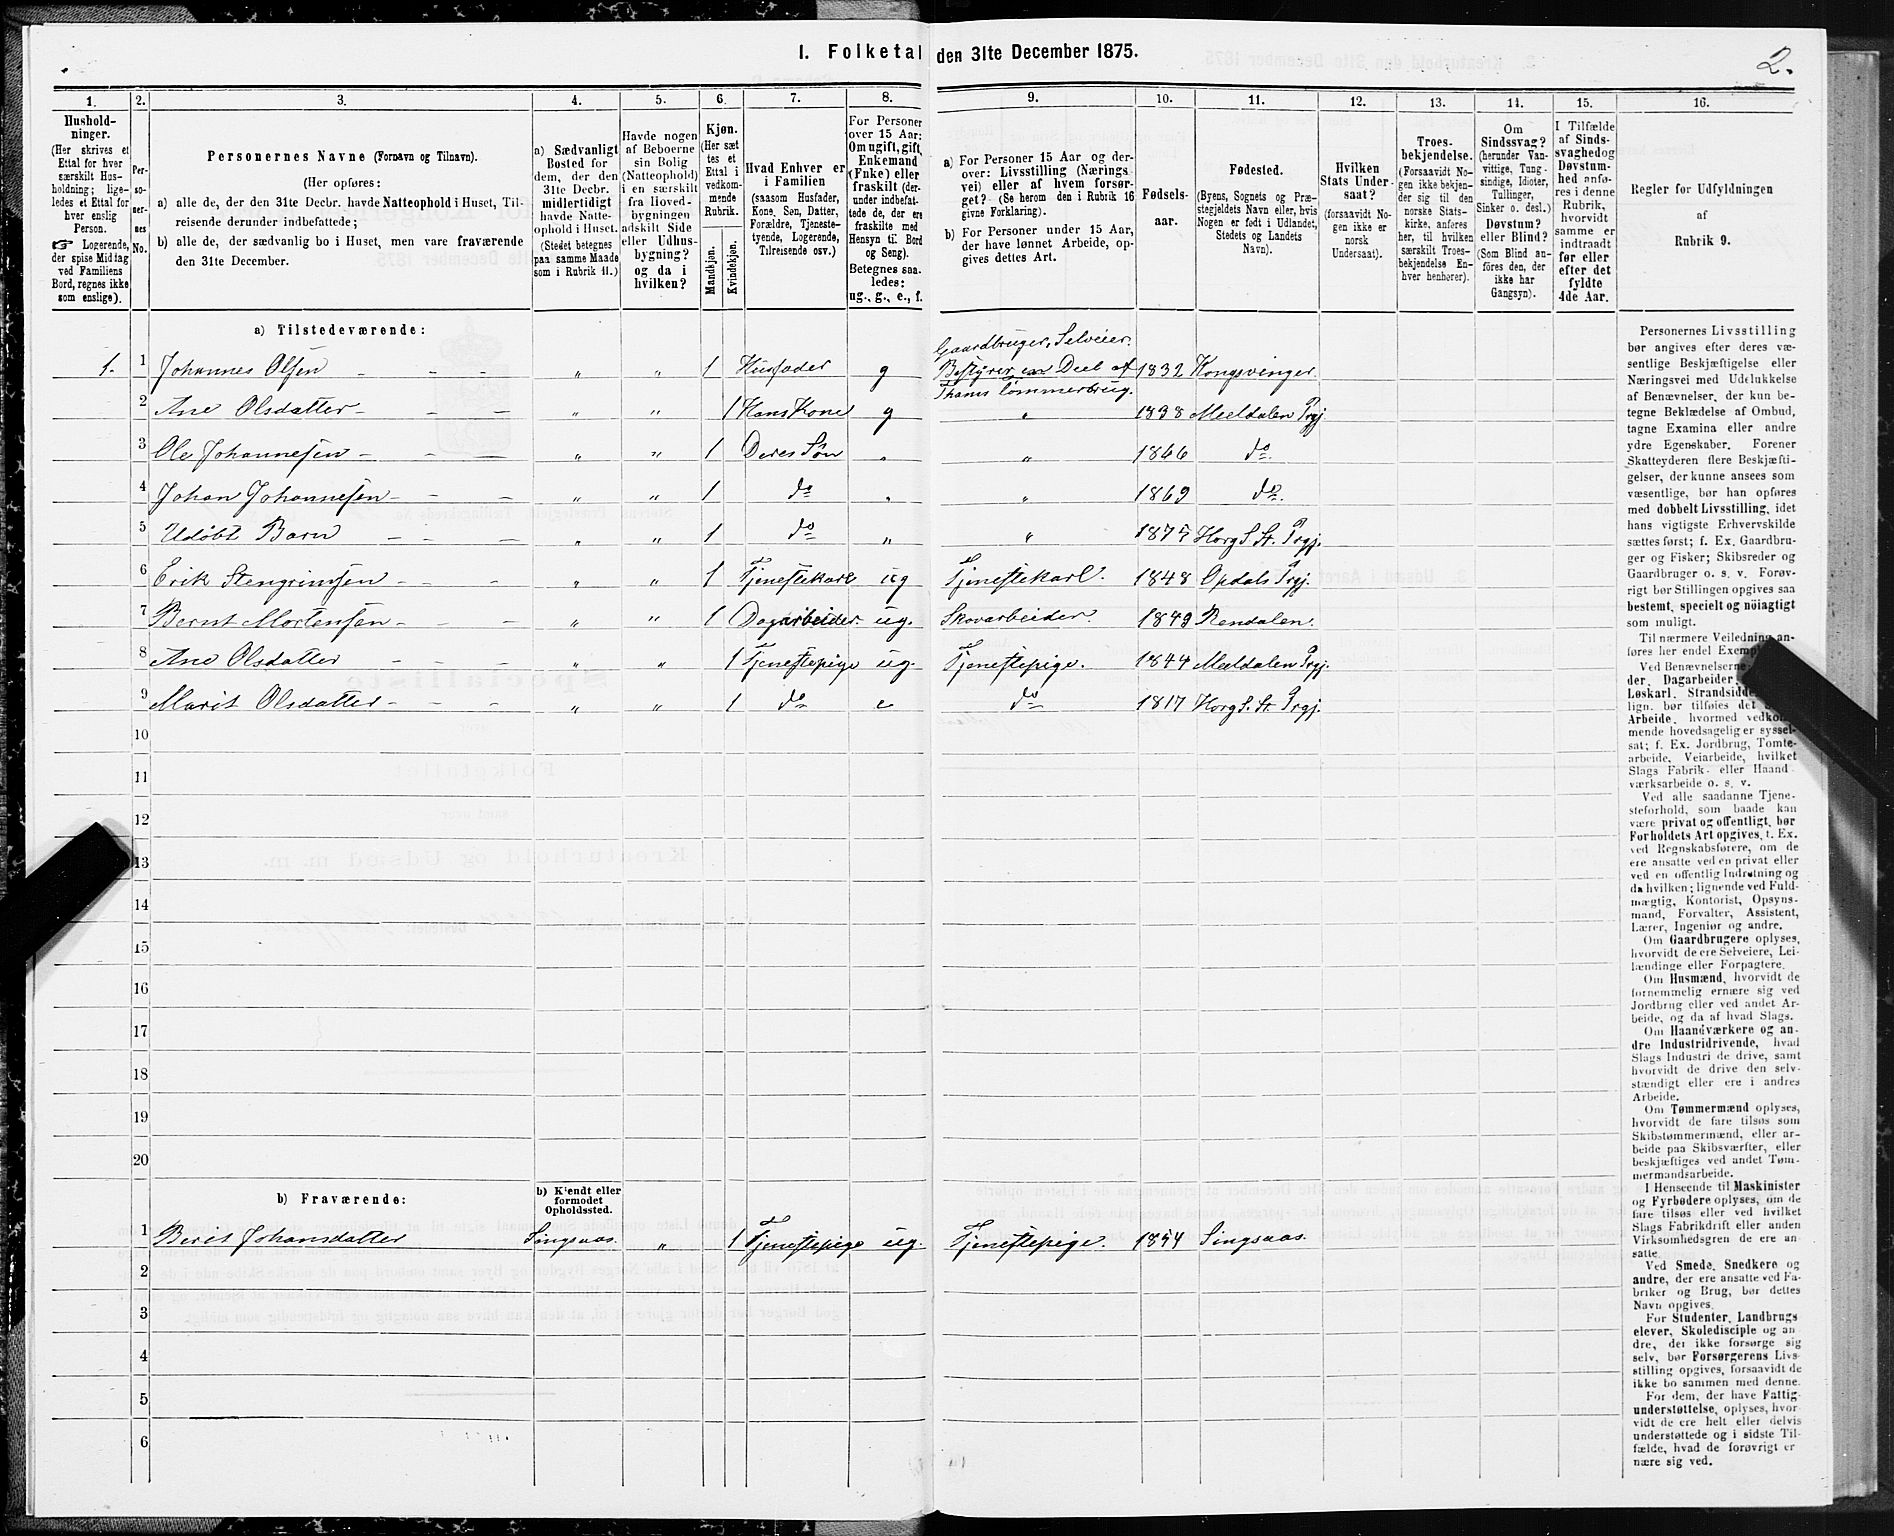 I. Folketal den 31te December 1875.
2.
1.
2.
3.
4.
5.
6.
7.
8.
9.
10.
11.
12.
13.
14.
15.
16.
Hushold-
ninger.
(Her skrives et
Ettal for hver
særskilt Hus-
holdning; lige-
ledes et Ettal for
hver enslig
Person.
☞ Logerende,
der spise Middag
ved Familiens
Bord, regnes ikke
som enslige).
Per-
so-
ner-
nes
No.
Personernes Navne (Fornavn og Tilnavn).
(Her opføres:
a) alle de, der den 31te Decbr. havde Natteophold i Huset, Til-
reisende derunder indbefattede;
b) alle de, der sædvanlig bo i Huset, men vare fraværende
den 31te December.
a) Sædvanligt
Bosted for
dem, der den
31te Decbr.
midlertidigt
havde Natte-
ophold i Huset.
(Stedet betegnes
paa samme Maade
som i Rubrik 11.)
Havde nogen
af Beboerne
sin Bolig
(Natteophold)
i en særskilt
fra Hoved-
bygningen
adskilt Side
eller Udhus-
bygning?
og da i
hvilken?
Kjøn.
(Her sæt
tes et
Ettal i
vedkom-
mende
Rubrik.
Mandkjøn.
Kvindekjøn.
Hvad Enhver er
i Familien
(saasom Husfader,
Kone, Søn, Datter,
Forældre, Tjeneste-
tyende, Logerende,
Tilreisende osv.)
For Personer
over 15 Aar:
Om ugift, gift,
Enkemand
(Enke) eller
fraskilt (der-
under indbefat-
tede de, der ere
fraskilte med
Hensyn til Bord
og Seng).
Betegnes saa-
ledes:
ug., g., e., f.
a) For Personer 15 Aar og der-
over: Livsstilling (Nærings
vei) eller af hvem forsør-
get? (Se herom den i Rubrik 16
givne Forklaring).
b) For Personer under 15 Aar,
der have lønnet Arbeide, op-
gives dettes Art.
Fødsels-
aar.
Fødested.
(Byens, Sognets og Præ-
stegjeldets Navn eller, hvis
Nogen er født i Udlandet,
Stedets og Landets
Navn).
Hvilken
Stats Under-
saat?
(forsaavidt No-
gen ikke er
norsk
Undersaat).
Troes-
bekjendelse.
(Forsaavidt No-
gen ikke bekjen-
der sig til den
norske Stats-
kirke, anføres
her, til hvilken
særskilt Troes-
bekjendelse En-
hver henhører).
Om
Sindssvag?
(herunder Van-
vittige, Tung-
sindige, Idioter,
Tullinger,
Sinker o. desl.)
Døvstum?
eller Blind?
(Som Blind an-
føres den, der
ikke har
Gangsyn).
I Tilfælde
af Sinds-
svaghedog
Døvstum-
hed anfø-
res i denne
Rubrik,
hvorvidt
samme er
indtraadt
før eller
efter det
fyldte
4de Aar.
Regler for Udfyldningen
af
Rubrik 9.
a) Tilstedeværende:
1. 1 Johannes Olsen - - - „ „ 1 Husfader g Gaardbruger, Selveier.
Bestyrer en Deel af
Thams Tømmerbrug. 1832 Kongsvinger.
2 Ane Olsdatter - - - „ „ 1 Hans Kone g „ 1838 Meeldalen Prgj
3 Ole Johannesen - - - „ „ 1 Deres Søn „ „ 1866 do.
4 Johan Johannesen - - - „ „ 1 do „ „ 1869 do.
5 Udøbt Barn - - - „ „ 1 do „ „ 1875 Horg S. St. Prgj.
6 Erik Stengrimsen - - - „ „ 1 Tjenestekarl ug Tjenestekarl. 1848 Opdals Prgj.
7 Bernt Mortensen - - - „ „ 1 Dagarbeider. ug. Skovarbeider. 1849 Rendalen.
8 Ane Olsdatter - - - „ „ 1 Tjenestepige ug. Tjenestepige. 1844 Meeldalen Prgj.
9 Marit Olsdatter - - - „ „ 1 do e do 1817 Horg S. St. Prgj.
10
11
12
13
14
15
16
17
18
19
20
b) Fraværende:
b) Kjendt eller
formodet
Opholdssted.
1 Berit Johansdatter Singsaas. „ 1 Tjenestepige ug. Tjenestepige. 1854 Singsaas.
2
3
4
5
6
Personernes Livsstilling
bør angives efter deres væ-
sentlige Beskjæftigelse eller
Næringsvei med Udelukkelse
af Benævnelser, der kun be-
tegne Beklædelse af Ombud,
tagne Examina eller andre
ydre Egenskaber. Forener
Skatteyderen flere Beskjæfti-
gelser, der kunne ansees som
væsentlige, bør han opføres
med dobbelt Livsstilling, idet
hans vigtigste Erhvervskilde
sættes først; f. Ex. Gaardbru-
ger og Fisker; Skibsreder og
Gaardbruger o. s. v. Forøv-
rigt bør Stillingen opgives saa
bestemt, specielt og nøiagtigt
som muligt.
Til nærmere Veiledning an-
føres her endel Exemp
Ved Benævnelserne:
der, Dagarbeider,
Løskarl, Strandsidde
lign. bør tilføies det
Arbeide, hvormed vedkom-
mende hovedsagelig er syssel-
sat; f. Ex. Jordbrug, Tomte-
arbeide, Veiarbeide, hvilket
Slags Fabrik- eller Haand-
værksarbeide o. s. v.
Ved alle saadanne Tjene-
steforhold, som baade kan
være privat og offentligt, bør
Forholdets Art opgives, t. Ex.
ved Regnskabsførere, om de
ere ansatte ved en privat eller
ved en offentlig Indretning og
da hvilken; lignende ved Fuld-
mægtig, Kontorist, Opsyns-
mand, Forvalter, Assistent,
Lærer, Ingeniør og andre.
Om Gaardbrugere oplyses,
hvorvidt de ere Selveiere, Lei-
lændinge eller Forpagtere.
Om Husmænd, hvorvidt de
fornemmelig ernære sig ved
Jordbrug eller ved andet Ar-
beide, og da af hvad Slags.
Om Haandværkere og an-
dre Industridrivende, hvad
Slags Industri de drive, samt
hvorvidt de drive den selv-
stændigt eller ere i andres
Arbeide.
Om Tømmermænd oplyses,
hvorvidt de fare tilsøs som
Skibstømmermænd, eller ar-
beide paa Skibsværfter, eller
beskjæftiges ved andet Tøm-
mermandsarbeide.
I Henseende til Maskinister
og Fyrbødere oplyses, om de
fare tilsøs eller ved hvilket
Slags Fabrikdrift eller anden
Virksomhedsgren de ere an-
satte.
Ved Smede, Snedkere og
andre, der ere ansatte ved Fa-
briker og Brug, bør dettes
Navn opgives.
For Studenter, Landbrugs
elever, Skoledisciple og an
dre, der ikke forsørge sig
selv, bør Forsørgerens Livs-
stilling opgives, forsaavidt de
ikke bo sammen med denne.
For dem, der have Fattig-
understøttelse, oplyses, hvor-
vidt de ere helt eller delvis
understøttede og i sidste Til-
fælde, hvad de forøvrigt er
nære sig ved.